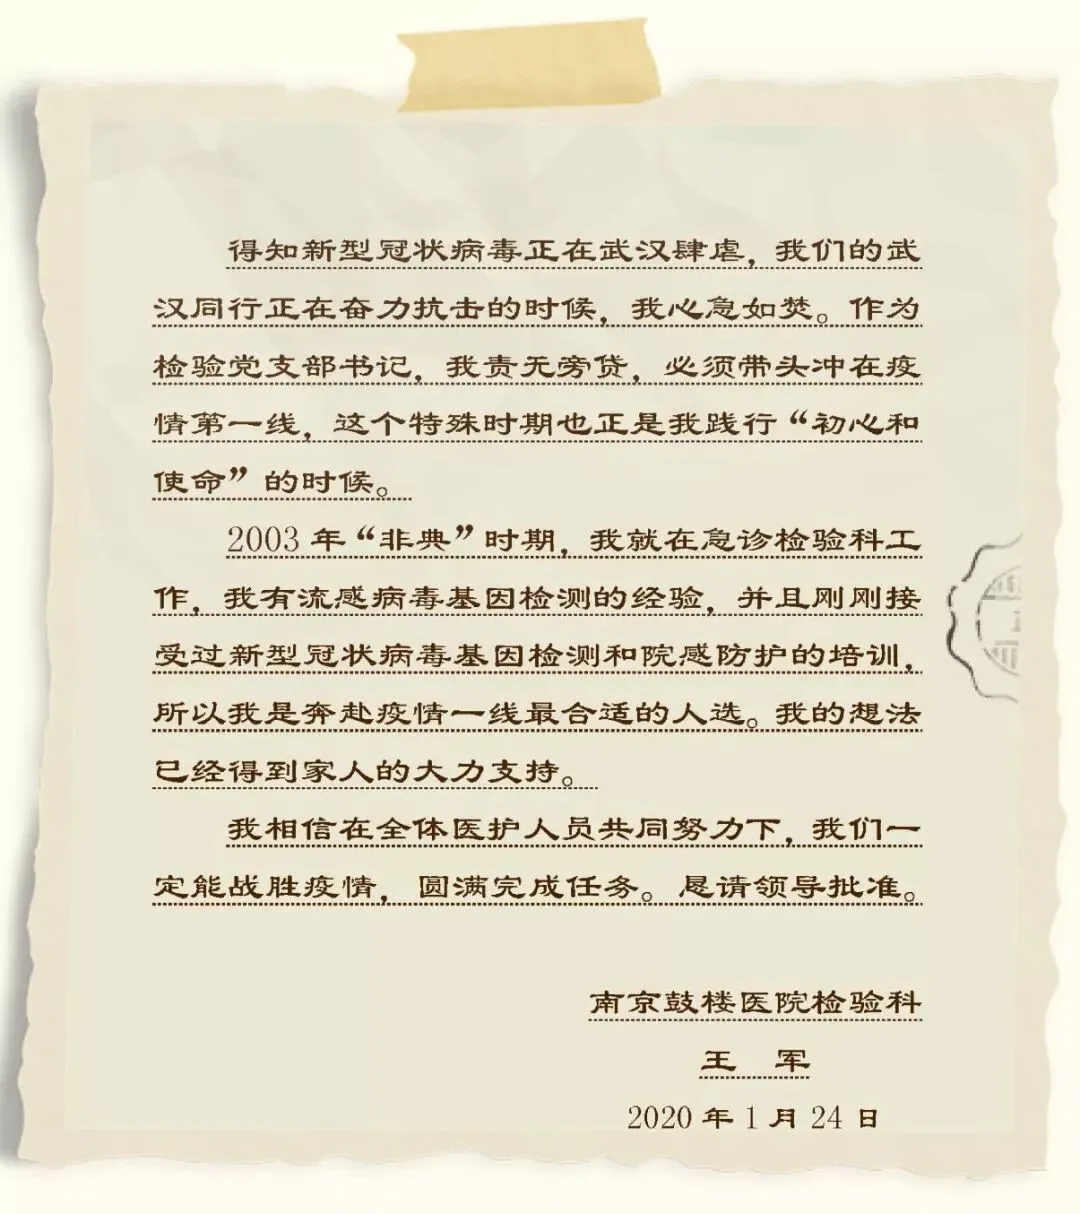 得知新型冠状病毒正在武汉肆虐，我们的武
汉同行正在奋力抗击的时候，我心急如焚。作为
检验党支部书记，我责无旁贷，必须带头冲在疫
情第一线，这个特殊时期也正是我践行“初心和
使命”的时候。
2003年“非典”时期，我就在急诊检验科工
作，我有流感病毒基因检测的经验，并且刚刚接
受过新型冠状病毒基因检测和院感防护的培训，
所以我是奔赴疫情一线最合适的人选。我的想法
已经得到家人的大力支持。
我相信在全体医护人员共同努力下，我们一
定能战胜疫情，圆满完成任务。恳请领导批准。
南京鼓楼医院检验科
王 军
2020年1月24日